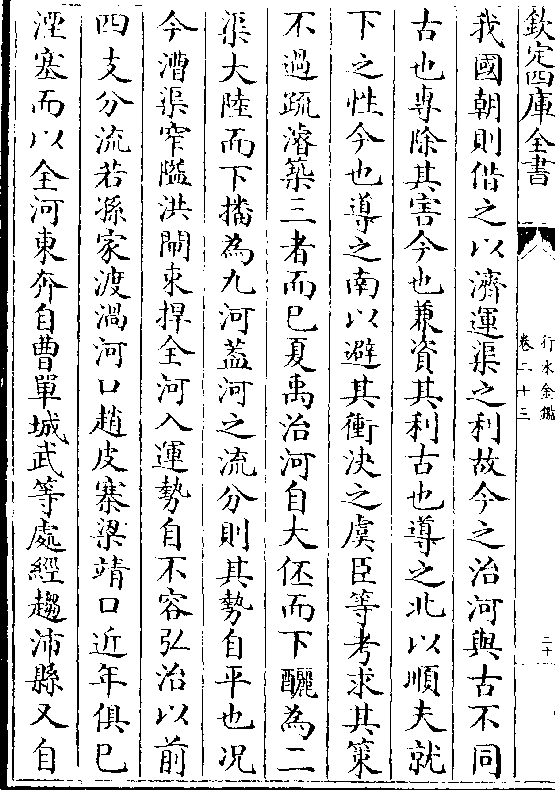 欽定四庫全書
行水金鑑
卷二十三
二十
我國朝則借之以濟運渠之利故今之治河與古不同
古也專除其害今也兼資其利古也導之北以順夫就
下之性今也導之南以避其衝決之虞臣等考求其策
不過疏濬築三者而已夏禹治河自大伾而下釃為二
渠大陸而下播為九河蓋河之流分則其勢自平也况
今漕渠窄隘洪閘束捍全河入運勢自不容弘治以前
四支分流若孫家渡渦河口趙皮寨梁靖口近年俱已
湮塞而以全河東奔自曹單城武等處經趨沛縣又自